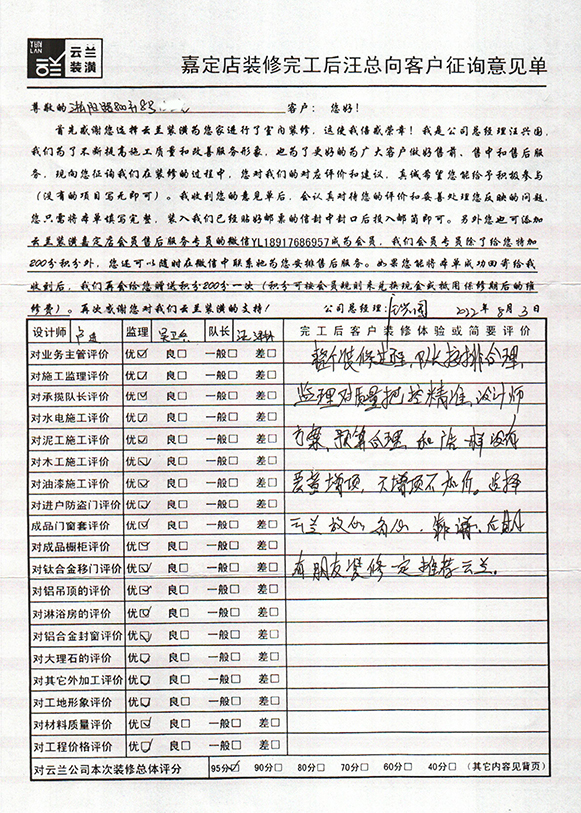 YUN
LAN
云兰
装潢
嘉定店装修完工后汪总向客户征询意见单
尊敬的 客户: 您好!
首先感谢您选择云兰装潢为您家进行了室内装修,这使我倍感荣幸!我是公司总经理汪兴国,
我们为了不断提高施工质量和改善服务形象,也为了更好的为广大客户做好售前、售中和售后服
务,现向您征询我们在装修的过程中,您对我们的对应评价和建议,真诚希望您能给予积极参与
(没有的项目写无即可)。我收到您的意见单后,会认真对待您的评价和妥善处理您反映的问题,
您只需将本单填写完整,装入我们已经贴好邮票的信封中封口后投入邮筒即可。另外您也可添加
云兰装潢嘉定店会员售后服务专员的微信YL18917686957成为会员,我们会员专员除了给您特加
200分积分外,您还可以随时在微信中联系她为您安排售后服务。如果您能将本单成功回寄给我
收到后,我们再会给您赠送积分200分一次(积分可按会员规则来兑换现金或抵用保修期后的维
修费)。再次感谢您对我们云兰装潢的支持! 公司总经理:汪兴国 2022年8月3日
设计师 监理 吴卫兵 队长 完工后客户装修体验或简要评价
对业务主管评价 优☑ 良□ 一般□ 差□ 整个装修过程,队长安排合理,
对施工监理评价 优☑ 良□ 一般□ 差□
对承揽队长评价 优☑ 良□ 一般□ 差□ 监理对质量把控精准,设计师
对水电施工评价 优☑ 良□ 一般□ 差□
对泥工施工评价 优☑ 良□ 一般□ 差□ 方案、预算合理,和店一样没有
对木工施工评价 优☑ 良□ 一般□ 差□
对油漆施工评价 优☑ 良□ 一般□ 差□ 恶意增项,不增项不加价。选择
对进户防盗门评价 优☑ 良□ 一般□ 差□
成品门窗套评价 优☑ 良□ 一般□ 差□ 云兰放心、省心、靠谱,
对成品橱柜评价 优☑ 良□ 一般□ 差□
对钛合金移门评价 优☑ 良□ 一般□ 差□ 有朋友装修一定推荐云兰.
对铝吊顶的评价 优☑ 良□ 一般□ 差□
对淋浴房的评价 优☑ 良□ 一般□ 差□
对铝合金封窗评价 优☑ 良□ 一般□ 差□
对大理石的评价 优☑ 良□ 一般□ 差□
对其它外加工评价 优☑ 良□ 一般□ 差□
对工地形象评价 优☑ 良□ 一般□ 差□
对材料质量评价 优☑ 良□ 一般□ 差□
对工程价格评价 优☑ 良□ 一般□ 差□
对云兰公司本次装修总体评分 95分☑ 90分□ 80分□ 70分□ 60分□ 40分□ (其它内容见背页)